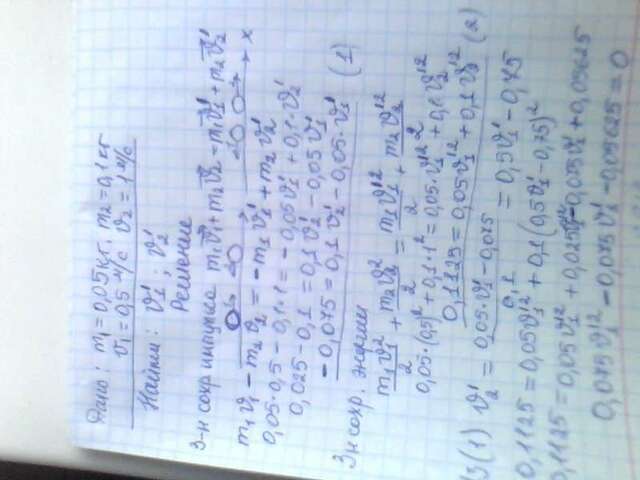 Дано: m₁=0,05кг, m₂=0,1кг
v₁=0,5 м/с v₂=1 м/с
Найти: v₁'; v₂'
Решение
З-н сохр импульса m₁v₁+m₂v₂=m₁v₁'+m₂v₂'
x
m₁v₁-m₂v₂=-m₁v₁'+m₂v₂'
0,05·0,5-0,1·1=-0,05v₁'+0,1·v₂'
0,025-0,1=0,1v₂'-0,05v₁'
-0,075=0,1v₂'-0,05·v₁' (1)
Зн сохр. энергии
m₁v₁²/2+m₂v₂²/2=m₁v₁'²/2+m₂v₂'²/2
0,05·(0,5)²+0,1·1²=0,05·v₁'²+0,1v₂'²
0,1125=0,05v₁'²+0,1v₂'² (2)
Из(1) v₂'=0,05·v₁'-0,075/0,1=0,5v₁'-0,75
0,1125=0,05v₁'²+0,1(0,5v₁'-0,75)²
0,1125=0,05v₁'²+0,025v₁'²-0,075v₁'+0,05625
0,075v₁'²-0,075v₁'-0,05625=0